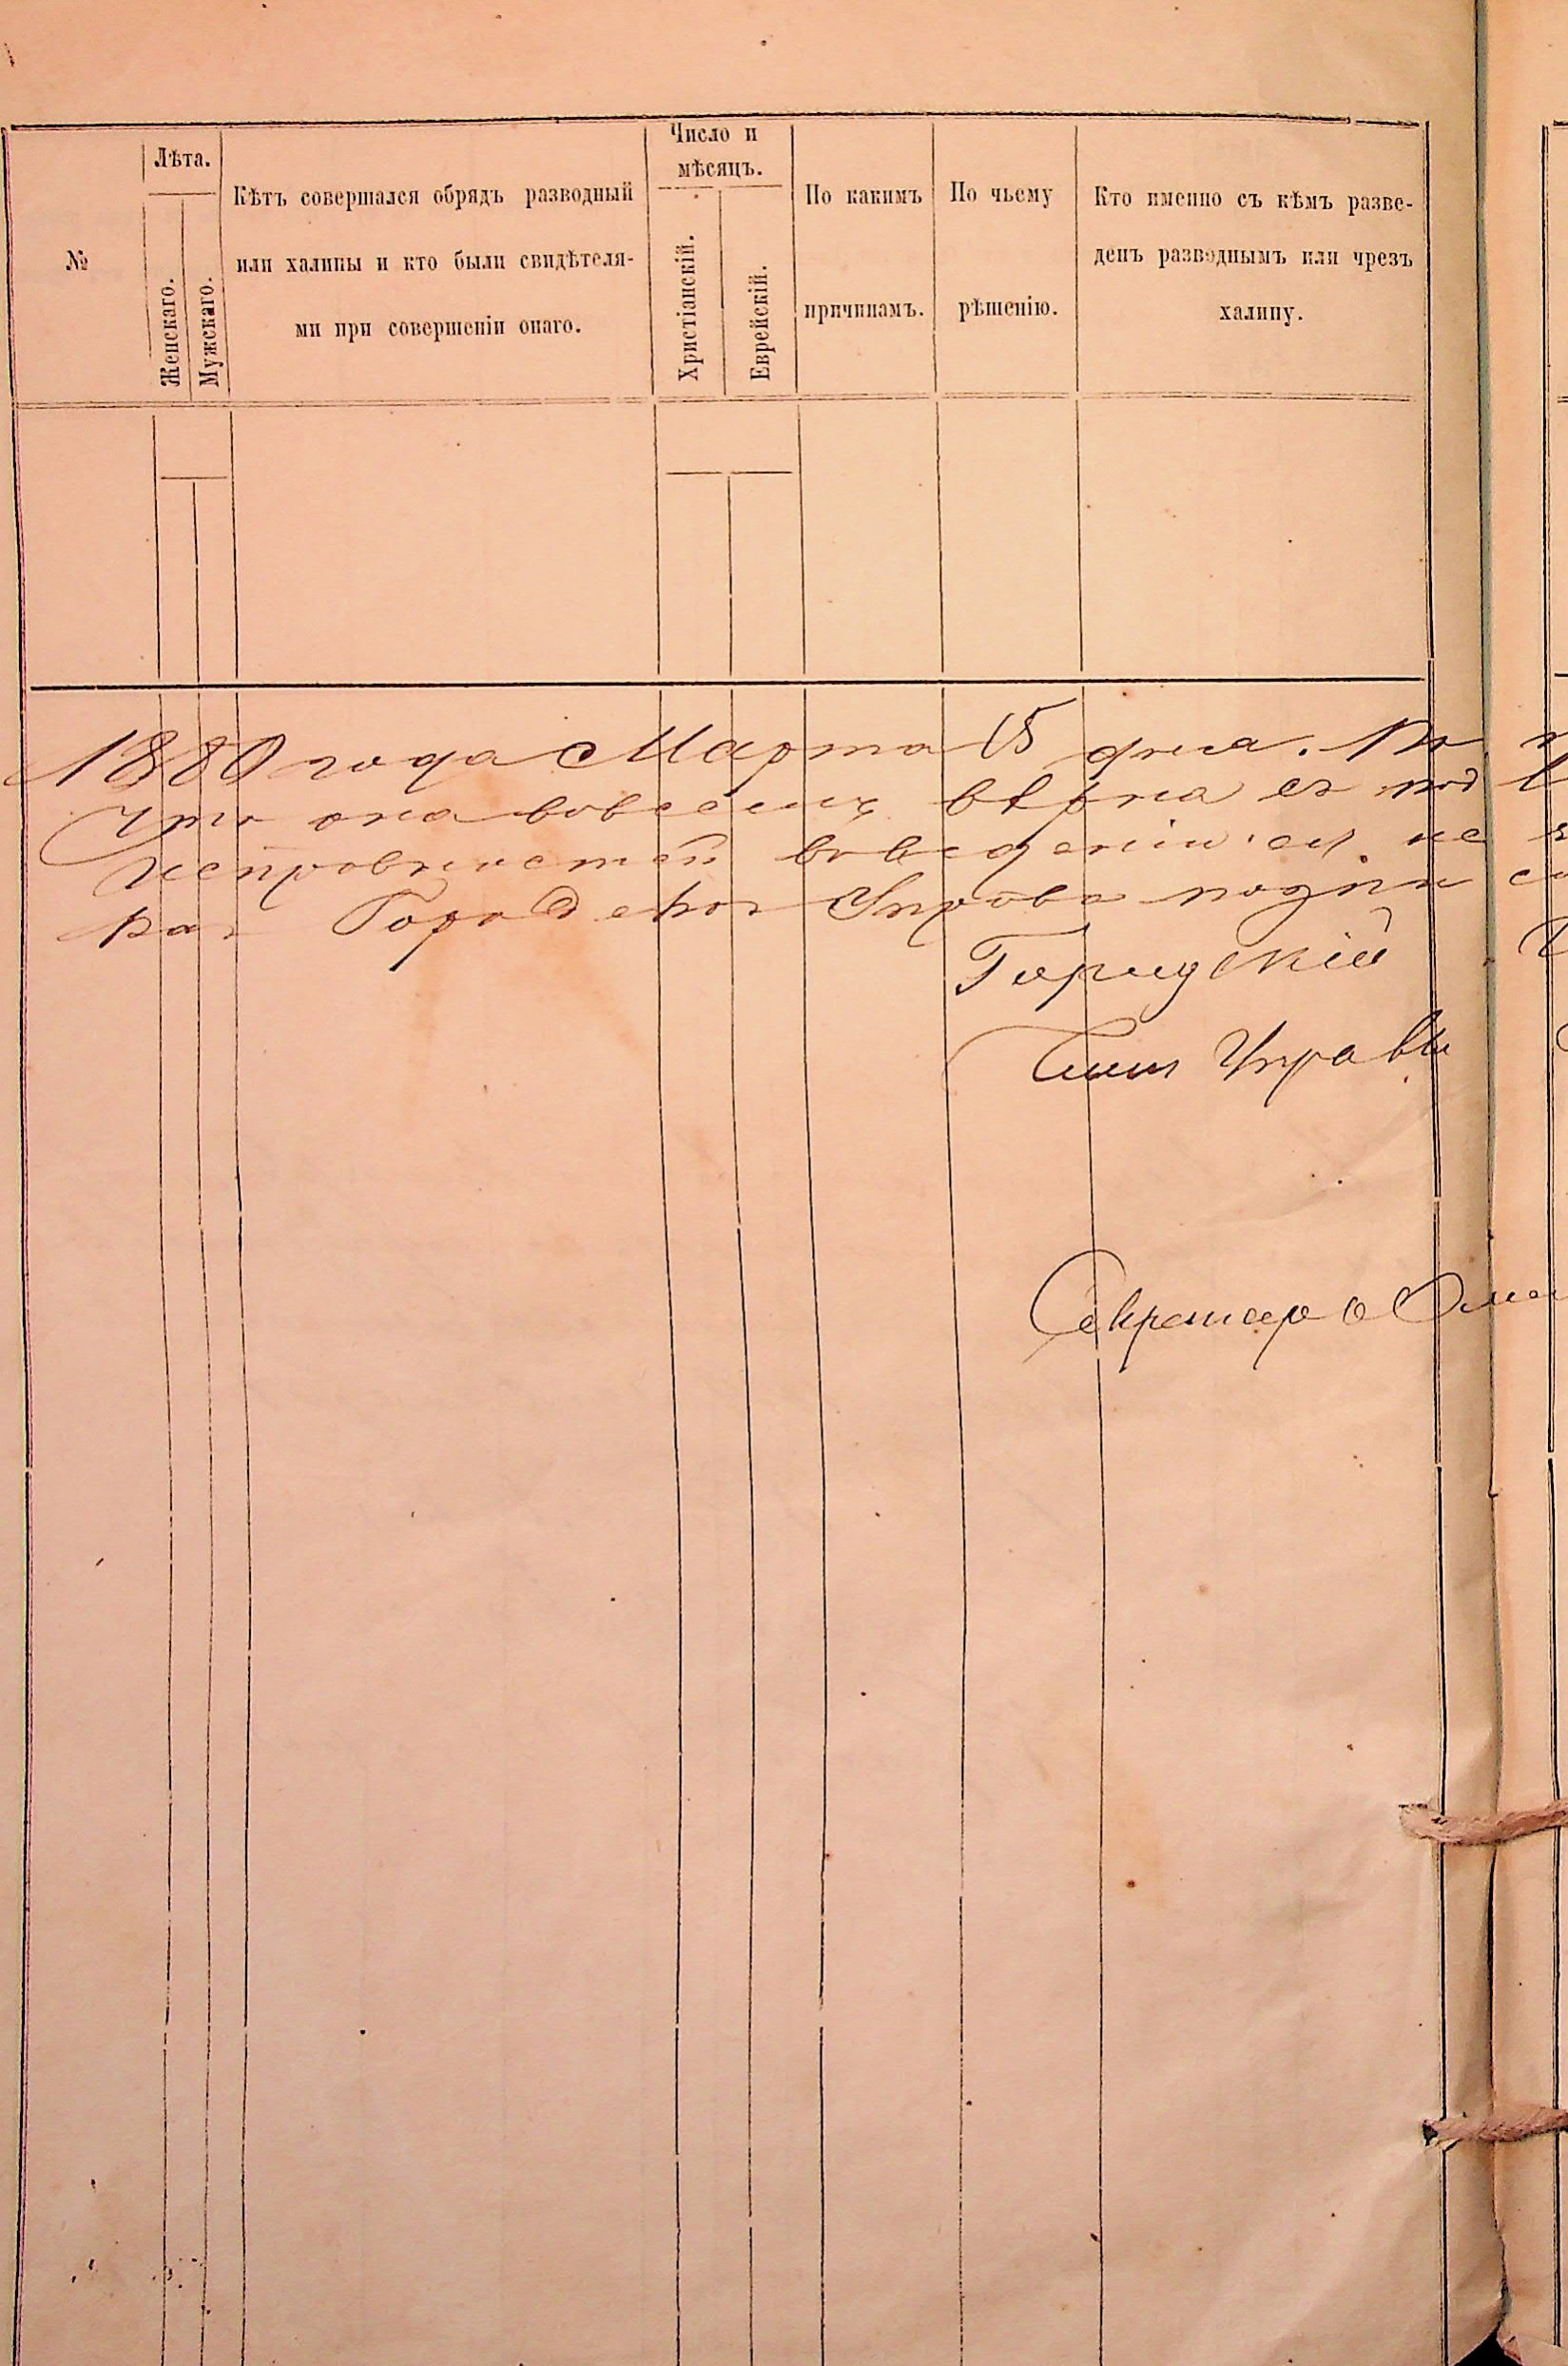 №
Лѣта.
Женскаго.
Мужскаго.
Кѣтъ совершался обрядъ разводный
или халицы и кто были свидѣтеля-
ми при совершеніи онаго.
Число и
мѣсяцъ.
Христіанскій.
Еврейскій.
По какимъ
причинамъ.
По чьему
рѣшенію.
Кто именно съ кѣмъ разве-
денъ разводнымъ или чрезъ
халицу.
1880 года Марта 15 дня. По
Что она вовсемъ вѣрна съ под
исправностей воведеніи ея не
Городская Управа подпи
Городскій
Члены Управы
Секретарь